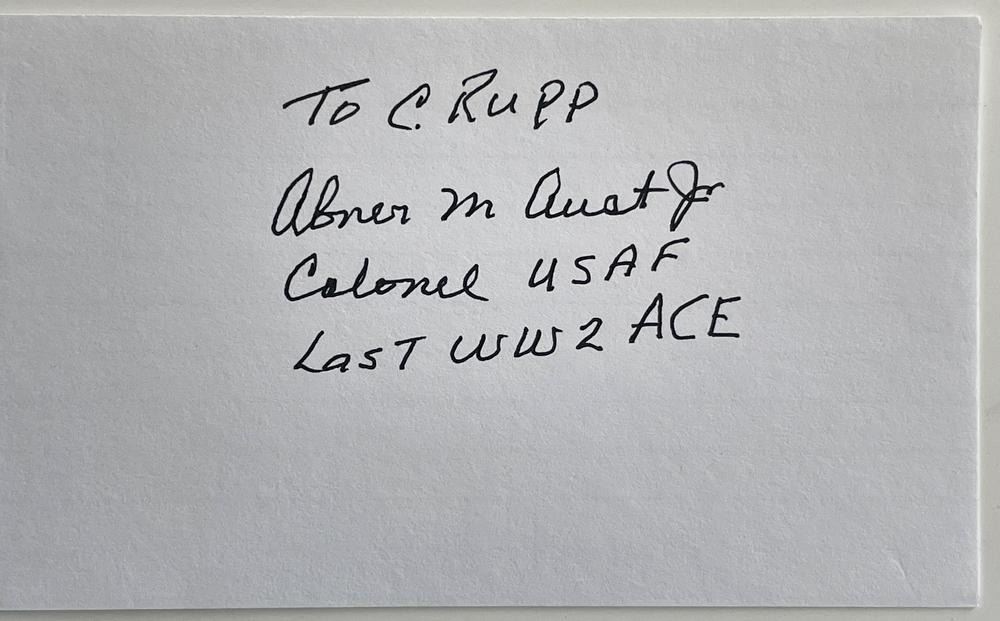 To C. Rupp
Abner M Aust Jr
Colonel USAF
Last WW2 ACE